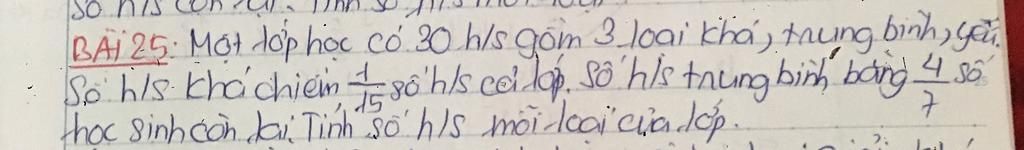 BÀI 25: Một lớp học có 30 h/s gồm 3 loại khá, trung bình, yếu.
Số h/s khá chiếm 1/15 số h/s cả lớp. Số h/s trung bình bằng 4/7 số
học sinh còn lại. Tính số h/s mỗi loại của lớp.